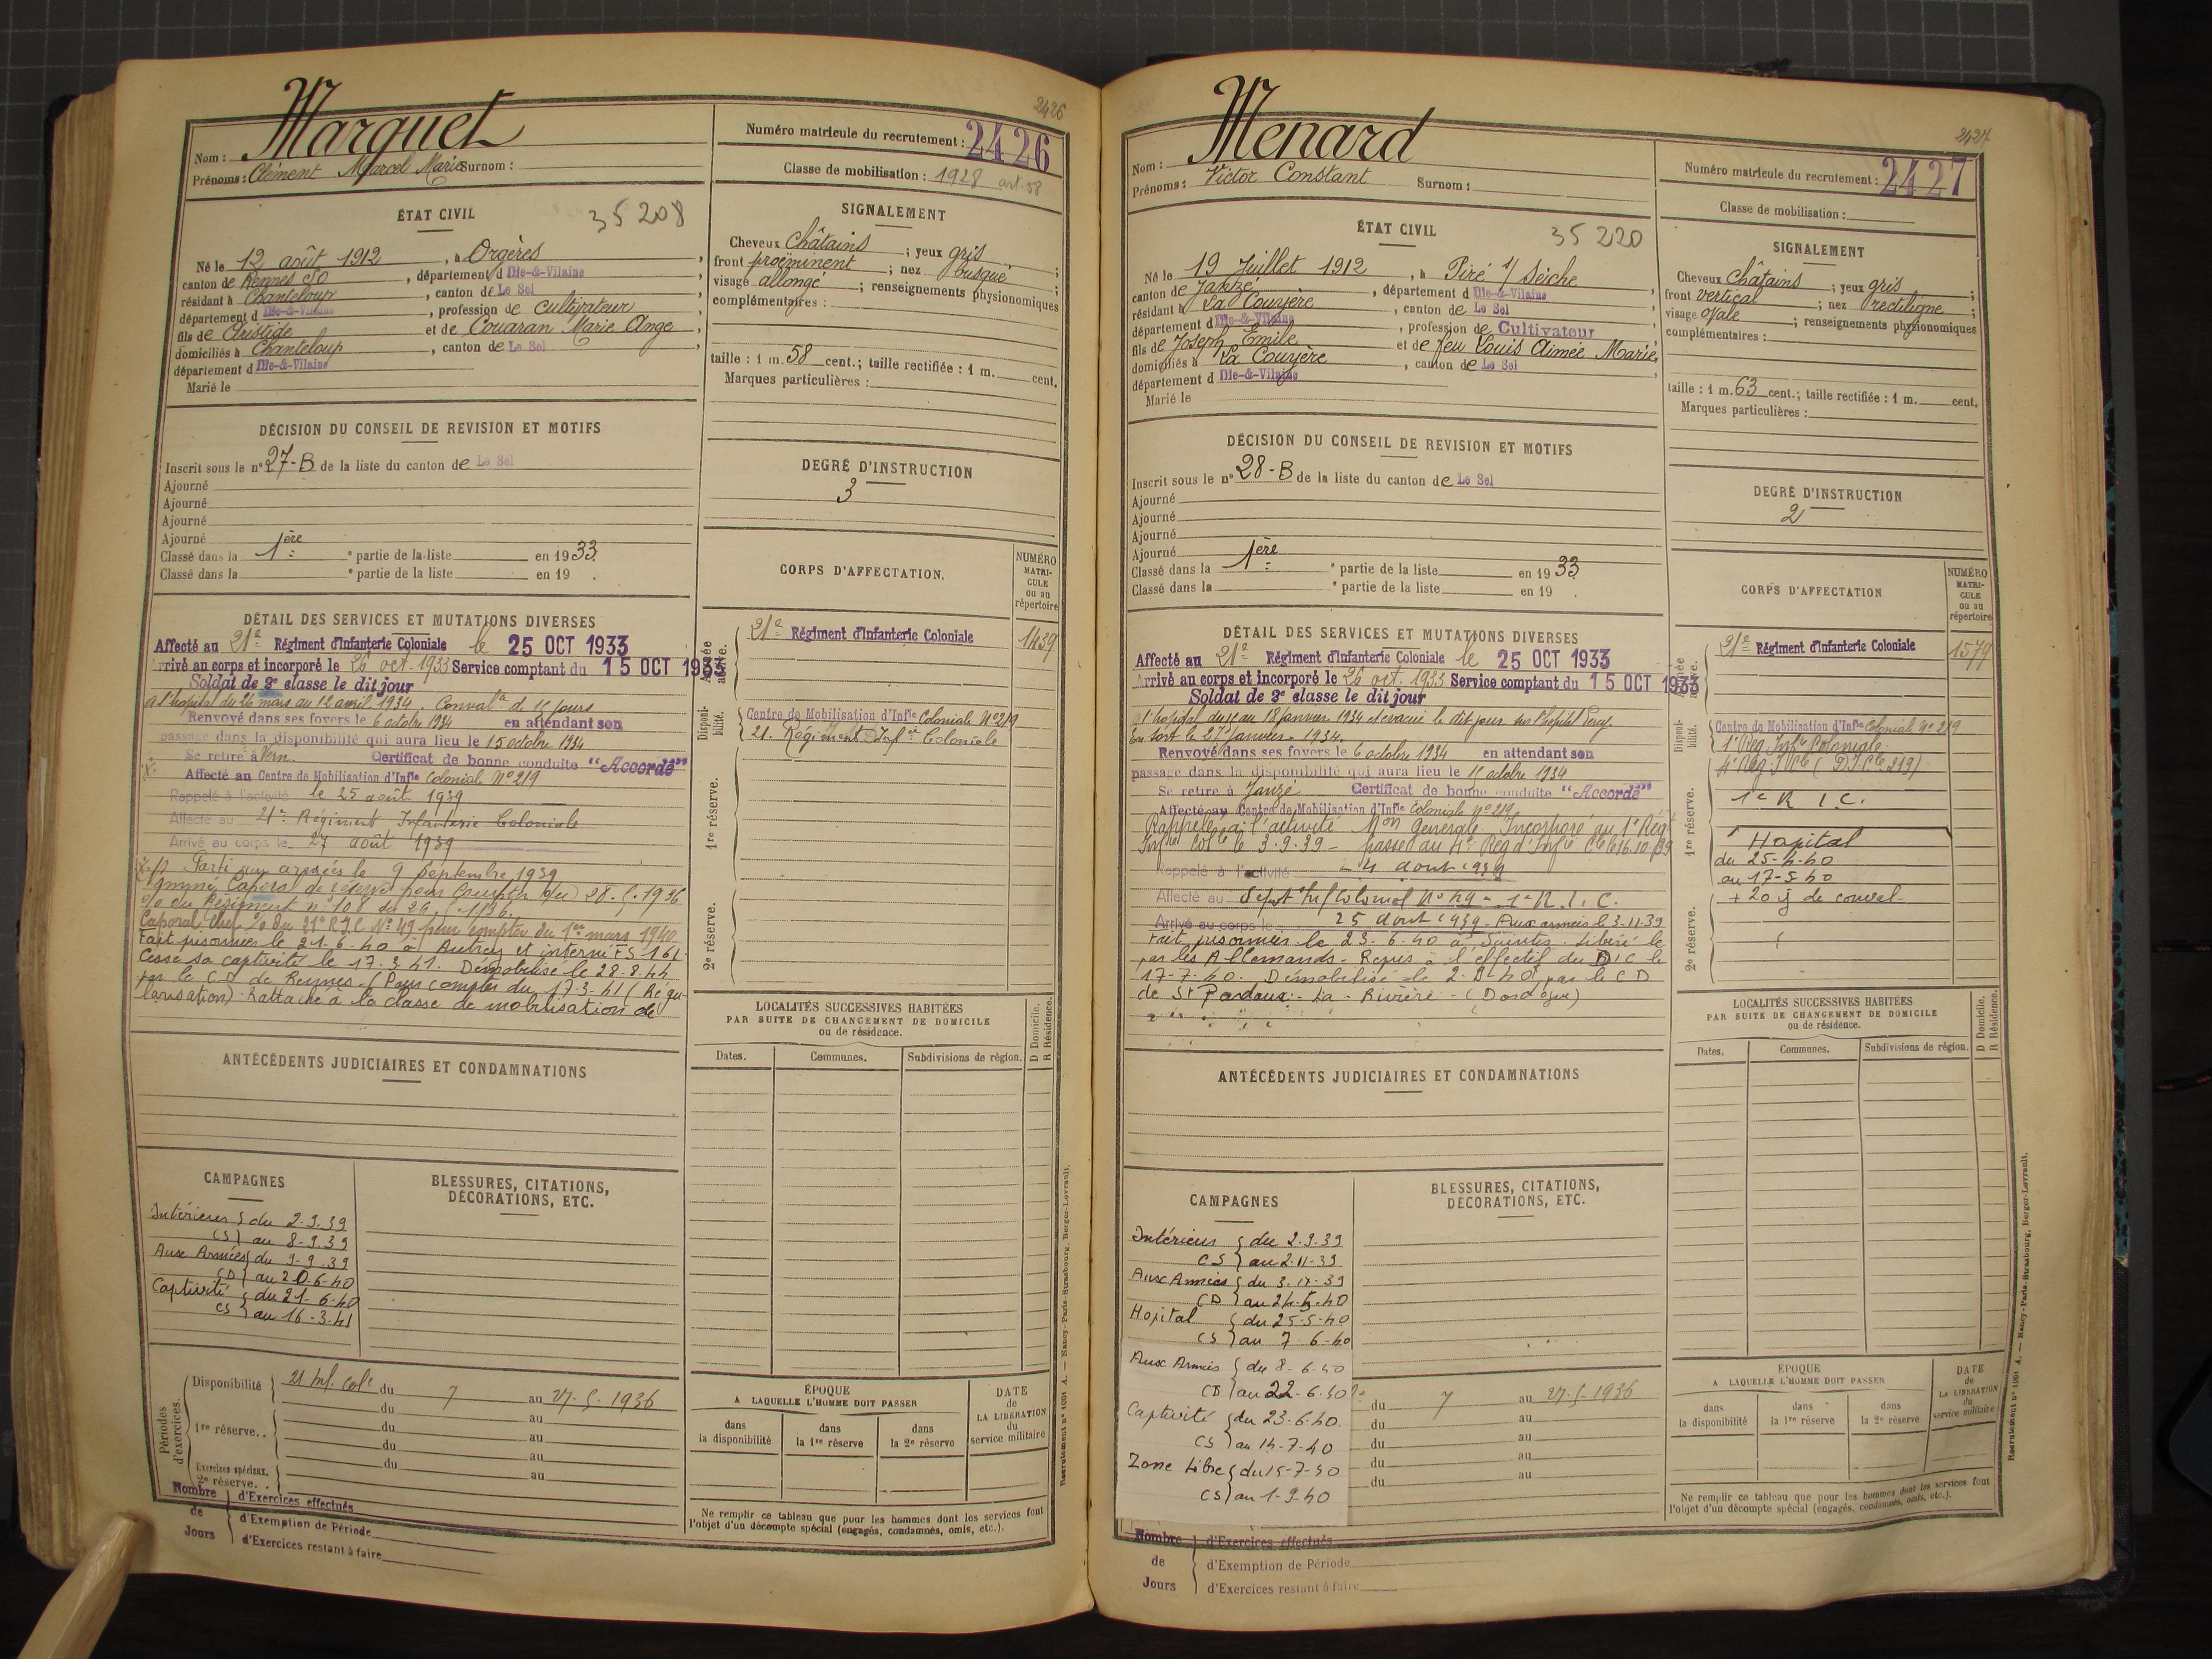 2426
Nom : Marquet
Prénoms : Clément Marcel Marie Surnom :
Numéro matricule du recrutement : 2426
Classe de mobilisation : 1928 art. 58
ÉTAT CIVIL
35208
Né le 12 août 1912, à Orgères,
canton de Rennes SO, département d Ille-&-Vilaine
résidant à Chanteloup, canton de Le Sel
département d Ille-&-Vilaine, profession de cultivateur
fils de Aristide et de Couaran Marie Ange,
domiciliés à Chanteloup, canton de Le Sel,
département d Ille-&-Vilaine
Marié le
SIGNALEMENT
Cheveux Châtains ; yeux gris ;
front proëminent ; nez busqué ;
visage allongé ; renseignements physionomiques
complémentaires :
taille : 1 m. 58 cent.; taille rectifiée : 1 m. cent.
Marques particulières :
DÉCISION DU CONSEIL DE REVISION ET MOTIFS
Inscrit sous le n° 27-B de la liste du canton de Le Sel
Ajourné
Ajourné
Ajourné
Ajourné
Classé dans la 1ère e partie de la liste en 1933.
Classé dans la e partie de la liste en 19 .
DEGRÉ D'INSTRUCTION
3
CORPS D'AFFECTATION.
NUMÉRO
MATRI-
CULE
ou au
répertoire
DÉTAIL DES SERVICES ET MUTATIONS DIVERSES
Affecté au 21e Régiment d'Infanterie Coloniale le 25 OCT 1933
Arrivé au corps et incorporé le 26 oct. 1933 Service comptant du 15 OCT 1933
Soldat de 2e classe le dit jour
A l'hôpital du 26 mars au 12 avril 1934. Conval ce de 15 jours
Renvoyé dans ses foyers le 6 octobre 1934 en attendant son
passage dans la disponibilité qui aura lieu le 15 octobre 1934
Se retire à Vern. Certificat de bonne conduite "Accordé"
Affecté au Centre de Mobilisation d'Infie Colonial N° 219
Rappelé à l'activité le 25 août 1939
Affecté au 21e Régiment Infanterie Coloniale
Arrivé au corps le 27 août 1939
Parti aux armées le 9 septembre 1939
Nommé Caporal de réserve pour compter du 28.5.1936
o/o du Régiment n° 108 du 26.5.1936.
Caporal Chef o/o du 21e R.I.C N° 49 pour compter du 1er mars 1940
Fait prisonnier le 21-6-40 à Autrey et interné FS-161
Cesse sa captivité le 17.3.41. Démobilisé le 28-8-44
par le CD de Rennes. (Pour compter du 17-3-41 (Régu-
larisation). Rattaché à la classe de mobilisation de
Armée active.
21e Régiment d'Infanterie Coloniale 1439
Disponi-
bilité.
Centre de Mobilisation d'Infie Coloniale N° 219
21. Régiment Infie Coloniale
1re réserve.
2e réserve.
LOCALITÉS SUCCESSIVES HABITÉES
PAR SUITE DE CHANGEMENT DE DOMICILE
ou de résidence.
D Domicile.
R Résidence.
Dates. Communes. Subdivisions de région.
ANTÉCÉDENTS JUDICIAIRES ET CONDAMNATIONS
CAMPAGNES
BLESSURES, CITATIONS,
DÉCORATIONS, ETC.
Intérieur } du 2-9-39
CS } au 8-9-39
Aux Armées } du 9-9-39
CD } au 20-6-40
Captivité } du 21-6-40
CS } au 16-3-41
Périodes d'exercices.
Disponibilité 21 Inf. Cole du 7 au 27-5-1936
du au
1re réserve.. du au
du au
Exercices spéciaux. du au
2e réserve..
Nombre de Jours
d'Exercices effectués
d'Exemption de Période
d'Exercices restant à faire
ÉPOQUE
A LAQUELLE L'HOMME DOIT PASSER
DATE
de
LA LIBÉRATION
du
service militaire
dans la disponibilité
dans la 1re réserve
dans la 2e réserve
Ne remplir ce tableau que pour les hommes dont les services font
l'objet d'un décompte spécial (engagés, condamnés, omis, etc.).
Recrutement n° 1001 A. — Nancy-Paris-Strasbourg, Berger-Levrault.
2427
Nom : Menard
Prénoms : Victor Constant Surnom :
Numéro matricule du recrutement : 2427
Classe de mobilisation :
ÉTAT CIVIL
35220
Né le 19 Juillet 1912, à Piré s/ Seiche
canton de Janzé, département d Ille-&-Vilaine
résidant à La Couyère, canton de Le Sel
département d Ille-&-Vilaine, profession de Cultivateur
fils de Joseph Emile et de feu Louis Aimée Marie,
domiciliés à La Couyère, canton de Le Sel
département d Ille-&-Vilaine
Marié le
SIGNALEMENT
Cheveux Châtains ; yeux gris ;
front vertical ; nez rectiligne ;
visage ovale ; renseignements physionomiques
complémentaires :
taille : 1 m. 63 cent.; taille rectifiée : 1 m. cent.
Marques particulières :
DÉCISION DU CONSEIL DE REVISION ET MOTIFS
Inscrit sous le n° 28-B de la liste du canton de Le Sel
Ajourné
Ajourné
Ajourné
Ajourné
Classé dans la 1ère e partie de la liste en 1933.
Classé dans la e partie de la liste en 19 .
DEGRÉ D'INSTRUCTION
2
CORPS D'AFFECTATION
NUMÉRO
MATRI-
CULE
ou au
répertoire
DÉTAIL DES SERVICES ET MUTATIONS DIVERSES
Affecté au 21e Régiment d'Infanterie Coloniale le 25 OCT 1933
Arrivé au corps et incorporé le 26 oct. 1933 Service comptant du 15 OCT 1933
Soldat de 2e classe le dit jour
A l'hôpital du au 18 janvier 1934 et évacué le dit jour sur l'hôpital Percy.
En sort le 27 janvier 1934.
Renvoyé dans ses foyers le 6 octobre 1934 en attendant son
passage dans la disponibilité qui aura lieu le 15 octobre 1934
Se retire à Janzé Certificat de bonne conduite "Accordé"
Affecté au Centre de Mobilisation d'Infie Coloniale N° 219
Rappelé à l'activité Mon Générale Incorporé au 1e Régt
Infie Colle le 3.9.39 - passé au 4e Reg d'Infie Cle le 16.10.39
Rappelé à l'activité 24 août 1939
Affecté au Dépôt Inf Colonial N° 49 - 1e R.I.C.
Arrivé au corps le 25 août 1939. Aux armées le 3.11.39
Fait prisonnier le 23-6-40 à Saintes. Libéré le
par les Allemands. Repris à l'effectif du DIC le
17-7-40. Démobilisé le 2-9-40 par le CD
de St Pardoux - La - Rivière - (Dordogne)
Armée active.
21e Régiment d'Infanterie Coloniale 1579
Disponi-
bilité.
Centre de Mobilisation d'Infie Coloniale N° 219
1e Reg Infie Coloniale
4e Reg I Cle (D.I.Cle 219)
1re réserve.
1e R I.C.
Hopital
du 25-4-40
au 17-5-40
+ 20 j de conval.
2e réserve.
LOCALITÉS SUCCESSIVES HABITÉES
PAR SUITE DE CHANGEMENT DE DOMICILE
ou de résidence.
D Domicile.
R Résidence.
Dates. Communes. Subdivisions de région.
ANTÉCÉDENTS JUDICIAIRES ET CONDAMNATIONS
CAMPAGNES
BLESSURES, CITATIONS,
DÉCORATIONS, ETC.
Intérieur } du 2-9-39
CS } au 2-11-39
Aux Armées } du 3-11-39
CD } au 24-5-40
Hopital } du 25-5-40
CS } au 7-6-40
Aux Armées } du 8-6-40
CD } au 22-6-40
Captivité } du 23-6-40
CS } au 14-7-40
Zone Libre } du 15-7-40
CS } au 1-9-40
du 7 au 27-5-1936
du au
du au
du au
du au
Nombre de Jours
d'Exercices effectués
d'Exemption de Période
d'Exercices restant à faire
ÉPOQUE
A LAQUELLE L'HOMME DOIT PASSER
DATE
de
LA LIBÉRATION
du
service militaire
dans la disponibilité
dans la 1re réserve
dans la 2e réserve
Ne remplir ce tableau que pour les hommes dont les services font
l'objet d'un décompte spécial (engagés, condamnés, omis, etc.).
Recrutement n° 1001 A. — Nancy-Paris-Strasbourg, Berger-Levrault.